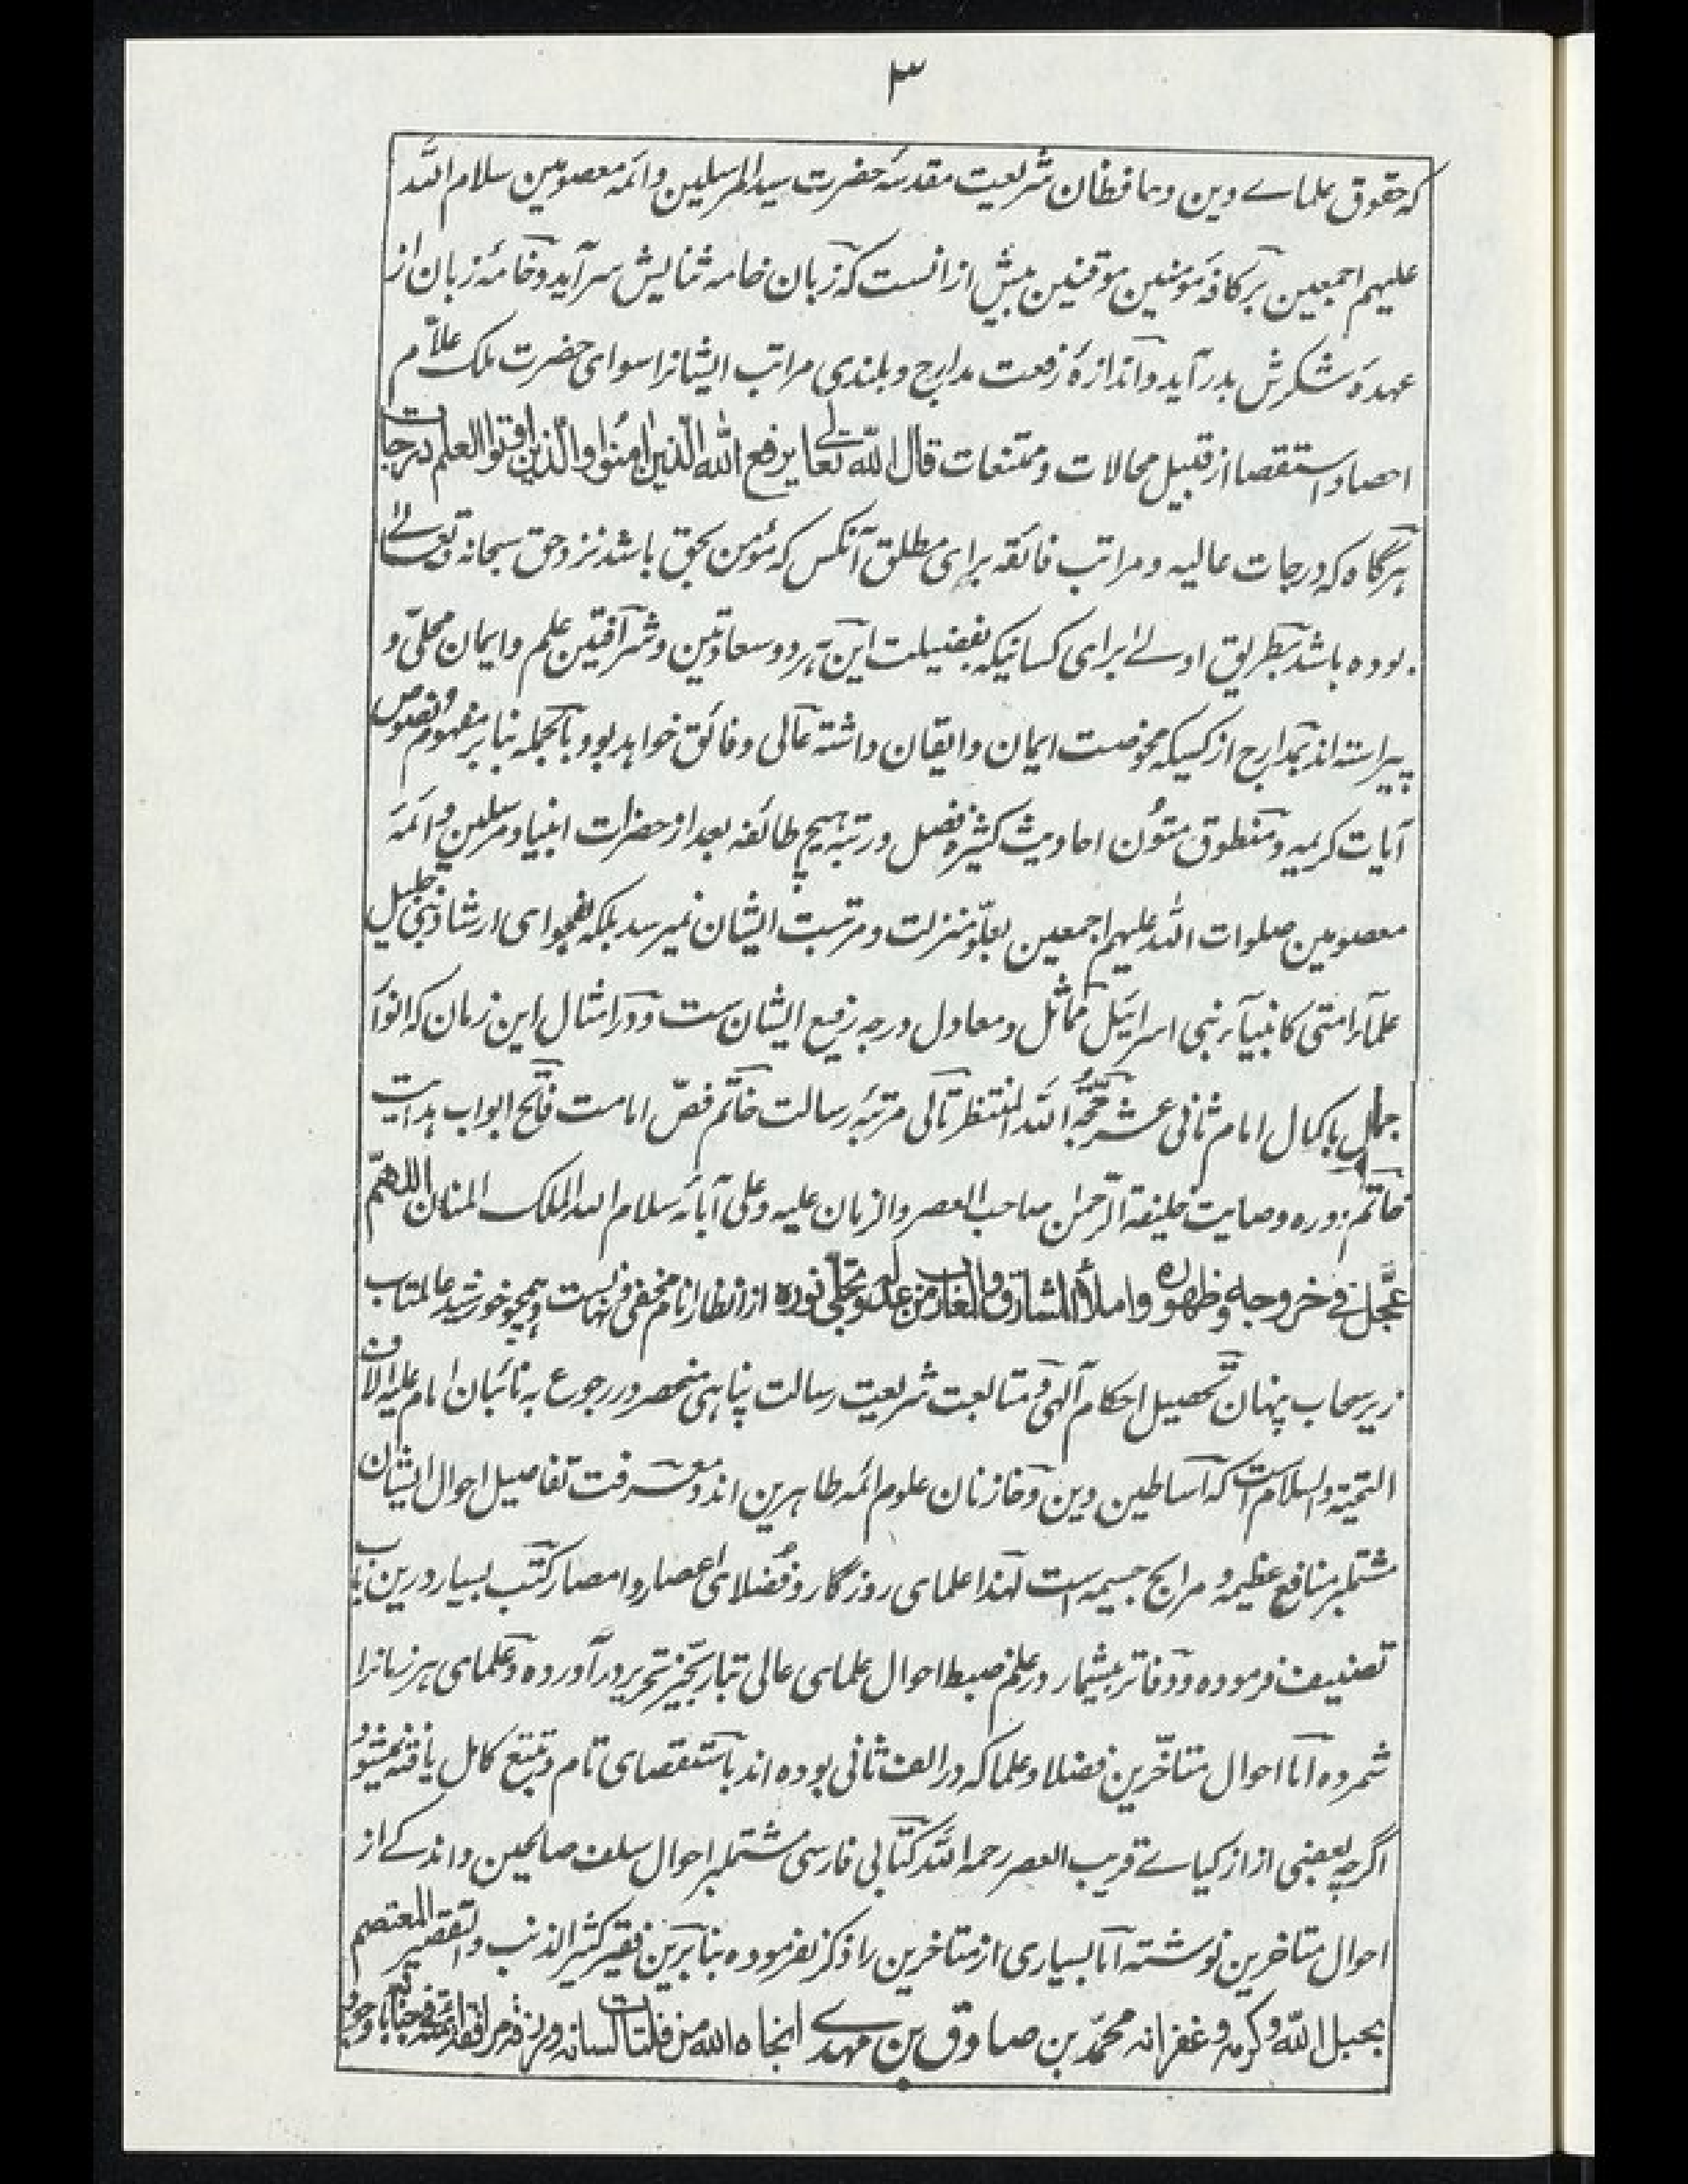 ٣
که حقوق علمای دین و محافظان شریعت مقدسه حضرت سید المرسلین و ائمه معصومین سلام الله
علیهم اجمعین بر کافه مؤمنین موقنین بیش از انست که زبان خامه ثنایش سرآید و خامهٔ زبان از
عهده شکرش بدر آید و اندازهٔ رفعت مدارج و بلندی مراتب ایشانرا سوای حضرت ملک علّام
احصا و استقصا از قبیل محالات و ممتنعات قال الله تعالی یرفع الله الّذین امنوا والّذین اوتوا العلم درجات
هرگاه که درجات عالیه و مراتب فائقه برای مطلق آنکس که مؤمن بحق باشد نزد حق سبحانه و تعالیٰ
بوده باشد بطریق اولے برای کسانیکه بفضیلت این هر دو سعادتین و شرافتین علم و ایمان محلّی و
پیراسته اند بمدارج از کسیکه محوضت ایمان و ایقان داشته عالی و فائق خواهد بود بالجمله بنا بر مفهوم نصوص
آیات کریمه و منطوق متون احادیث کثیره فضل و رتبه هیچ طائفه بعد از حضرات انبیا و مرسلین و ائمه
معصومین صلوات الله علیهم اجمعین بعلّو منزلت و مرتبت ایشان نمیرسد بلکه بفحوای ارشاد نبی جلیل
علمآء امتی کانبیآء بنی اسرائیل مماثل و معادل درجه رفیع ایشان ست و در امثال این زمان که انوار
جمال با کمال امام ثانی عشر حجّة الله المنتظر تالی مرتبهٔ رسالت خاتم فصّ امامت فاتح ابواب هدایت
خاتم دوره وصایت خلیفة الرّحمٰن صاحب العصر والزمان علیه و علی آبائه سلام الله الملک المنان اللهمّ
عجّل فی خروجه و ظهوره واملأ المشارق والمغارب من عدله و تجلّی نوره از انظار انام مخفی و نهانست و همچو خورشید عالمتاب
زیر سحاب پنهان تحصیل احکام آلهی و متابعت شریعت رسالت پناهی منحصر در رجوع به نائبان امام علیه الاف
التحیة والسلام است که اساطین دین و خازنان علوم ائمه طاهرین اند و معرفت تفاصیل احوال ایشان
مشتمل بر منافع عظیمه و مرابح جسیمه است لهذا علمای روزگار و فضلای اعصار و امصار کتب بسیار درین باب
تصنیف فرموده و دفاتر بیشمار در علم ضبط احوال علمای عالی تبار بحیّز تحریر در آورده و علمای هر زمانرا
شمرده اما احوال متأخّرین فضلا و علما که در الف ثانی بوده اند باستقصای تام و تتبع کامل یافته نمیشود
اگرچه بعضی از ازکیاے قریب العصر رحمه الله کتابی فارسی مشتملبر احوال سلف صالحین و اندکے از
احوال متاخرین نوشته اما بسیاری از متاخرین را ذکر نفرموده بنا برین فقیر کثیر الذنب والتقصیر المعتصم
بحبل الله و کرمه و غفرانه محمّد بن صادق بن مهدے انجاه الله من فلتات لسانه ورزقه مرافقة ائمته فی